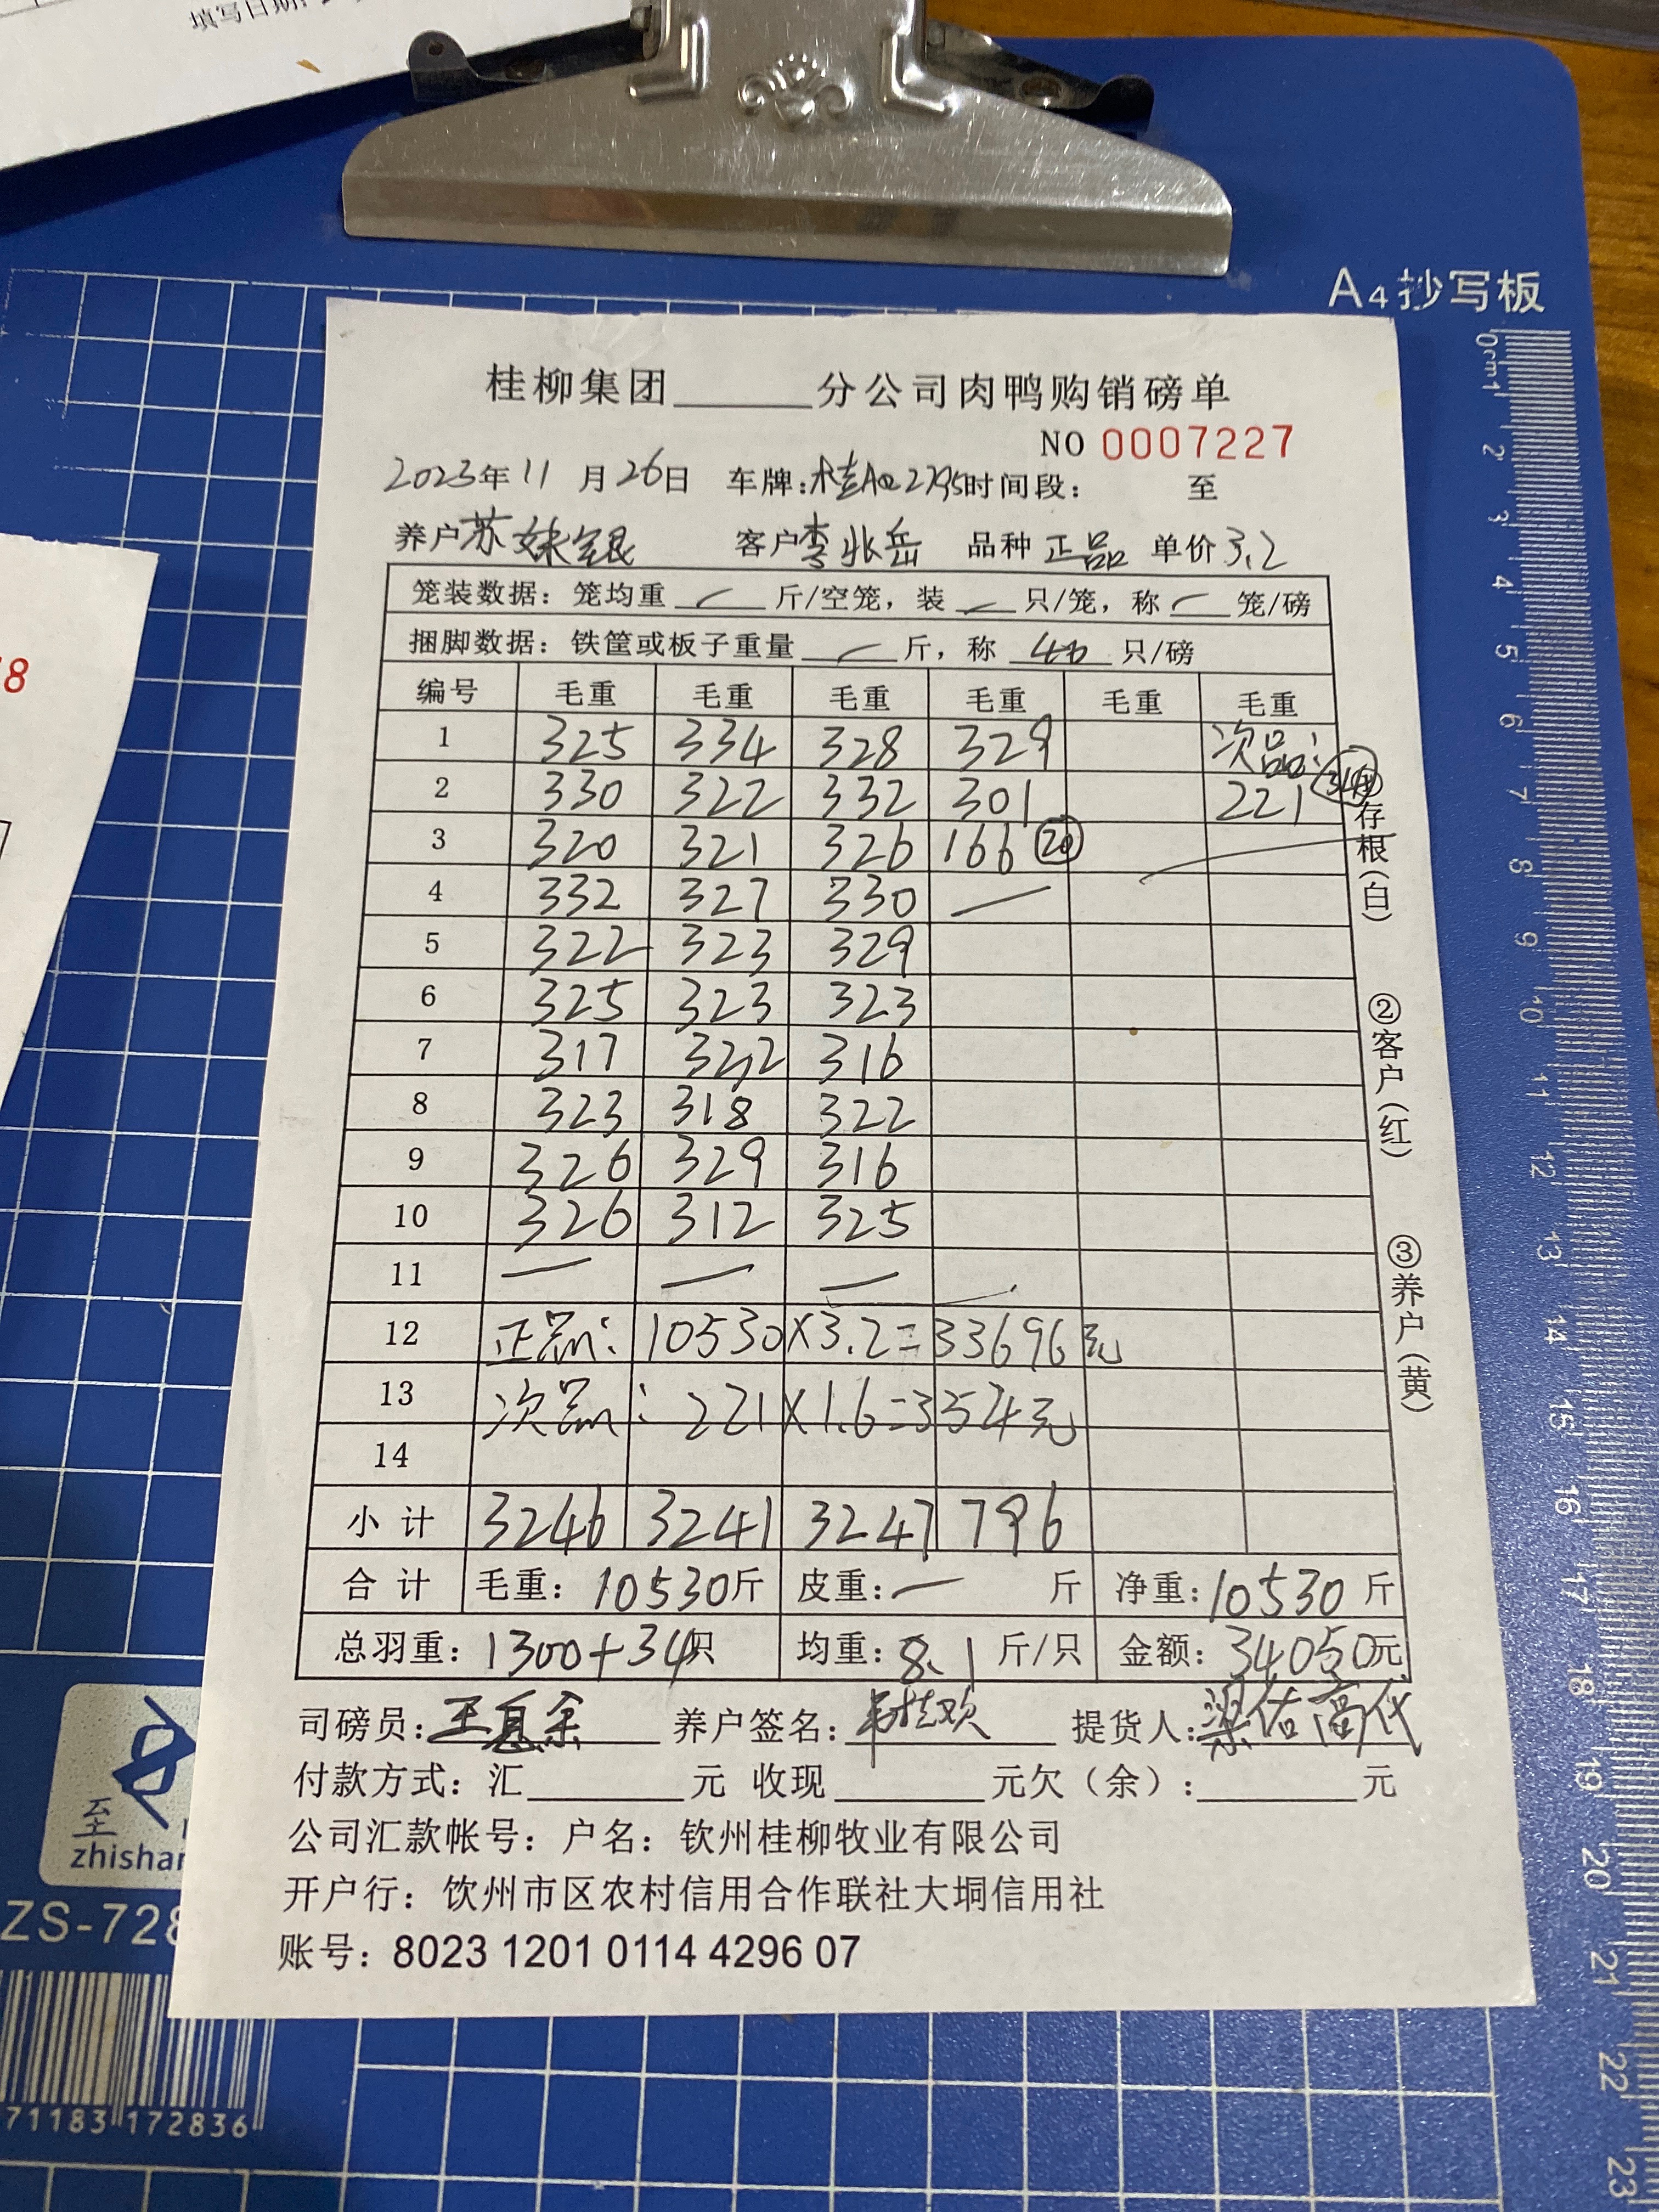 填写日期:
A4抄写板
桂柳集团______分公司肉鸭购销磅单
NO 0007227
2023年11月26日 车牌:桂A 时间段: 至
养户苏妹银 客户李兆岳 品种 正品 单价3.2
笼装数据: 笼均重 — 斤/空笼, 装 — 只/笼, 称 — 笼/磅
捆脚数据: 铁筐或板子重量 — 斤, 称 40 只/磅
编号 毛重 毛重 毛重 毛重 毛重 毛重
1 325 334 328 329 次品:
2 330 322 332 301 221
3 320 321 326 166 ⑳
4 332 327 330 —
5 322 323 329
6 325 323 323
7 317 322 316
8 323 318 322
9 326 329 316
10 326 312 325
11 — — —
12 正品: 10530×3.2=33696元
13 次品: 221×1.6=354元
14
小计 3246 3241 3247 796
合计 毛重: 10530斤 皮重: — 斤 净重: 10530 斤
总羽重: 1300+34只 均重: 8.1 斤/只 金额: 34050元
司磅员: 养户签名: 提货人:
付款方式: 汇______元 收现______元欠(余):______元
公司汇款帐号: 户名: 钦州桂柳牧业有限公司
开户行: 饮州市区农村信用合作联社大垌信用社
账号: 8023 1201 0114 4296 07
存根(白)
②客户(红)
③养户(黄)
0cm1 2 3 4 5 6 7 8 9 10 11 12 13 14 15 16 17 18 19 20 21 22 23
8
至
zhishan
ZS-728
71183 172836